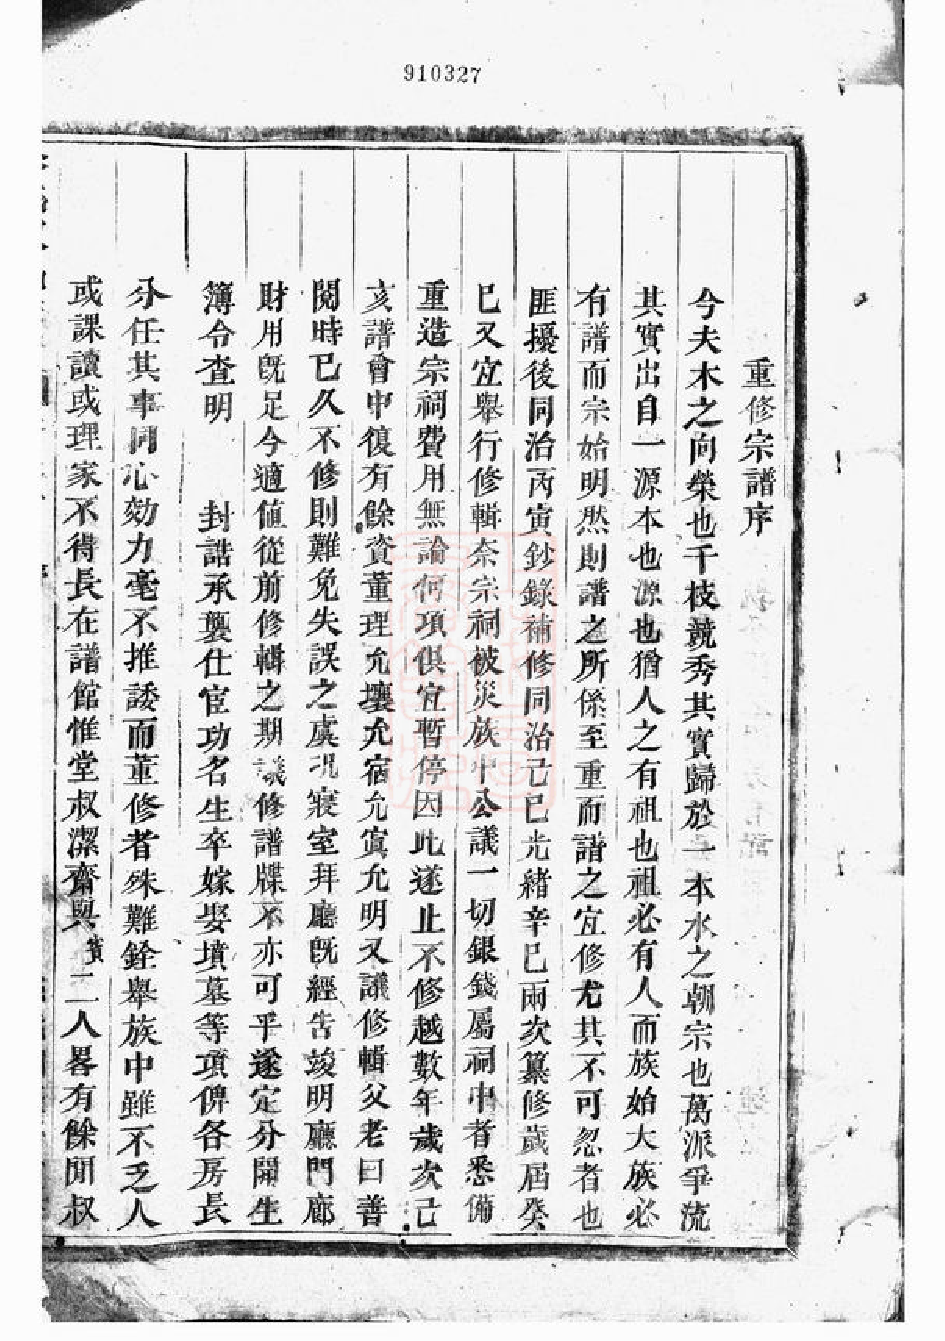 910327
重修宗譜序
今夫木之向榮也千枝競秀其實歸於一本水之朝宗也萬派爭流
其實出自一源本也源也猶人之有祖也祖必有人而族始大族必
有譜而宗始明然則譜之所係至重而譜之宜修尤其不可忽者也
匪擾後同治丙寅鈔錄補修同治己巳光緒辛巳兩次纂修歲屆癸
巳又宜舉行修輯奈宗祠被災族中公議一切銀錢屬祠中者悉備
重造宗祠費用無論何項俱宜暫停因此遂止不修越數年歲次己
亥譜會中復有餘資董理允壤允宿允寅允明又議修輯父老曰善
閱時已久不修則難免失誤之虞况寢室拜廳既經告竣明廳門廊
財用既足今適值從前修輯之期議修譜牒不亦可乎遂定分開生
簿令查明　封誥承襲仕宦功名生卒嫁娶墳墓等項俾各房長
分任其事同心効力毫不推諉而董修者殊難銓舉族中雖不乏人
或課讀或理家不得長在譜館惟堂叔潔齋與二人畧有餘閒叔